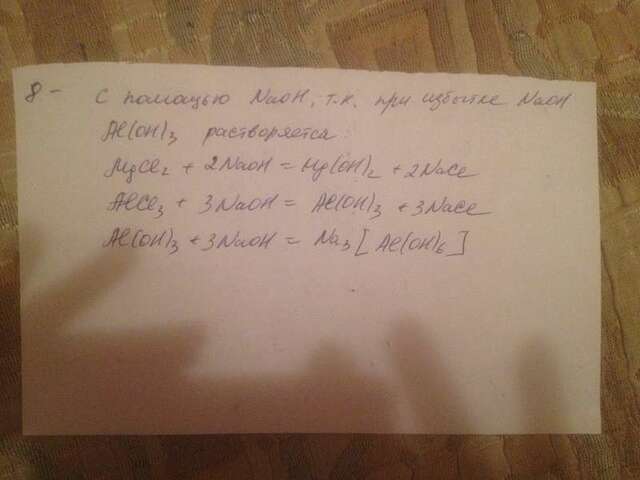 8 - С помощью NaOH, т.к. при избытке NaOH
Al(OH)₃ растворяется:
MgCl₂ + 2NaOH = Mg(OH)₂ + 2NaCl
AlCl₃ + 3NaOH = Al(OH)₃ + 3NaCl
Al(OH)₃ + 3NaOH = Na₃[Al(OH)₆]